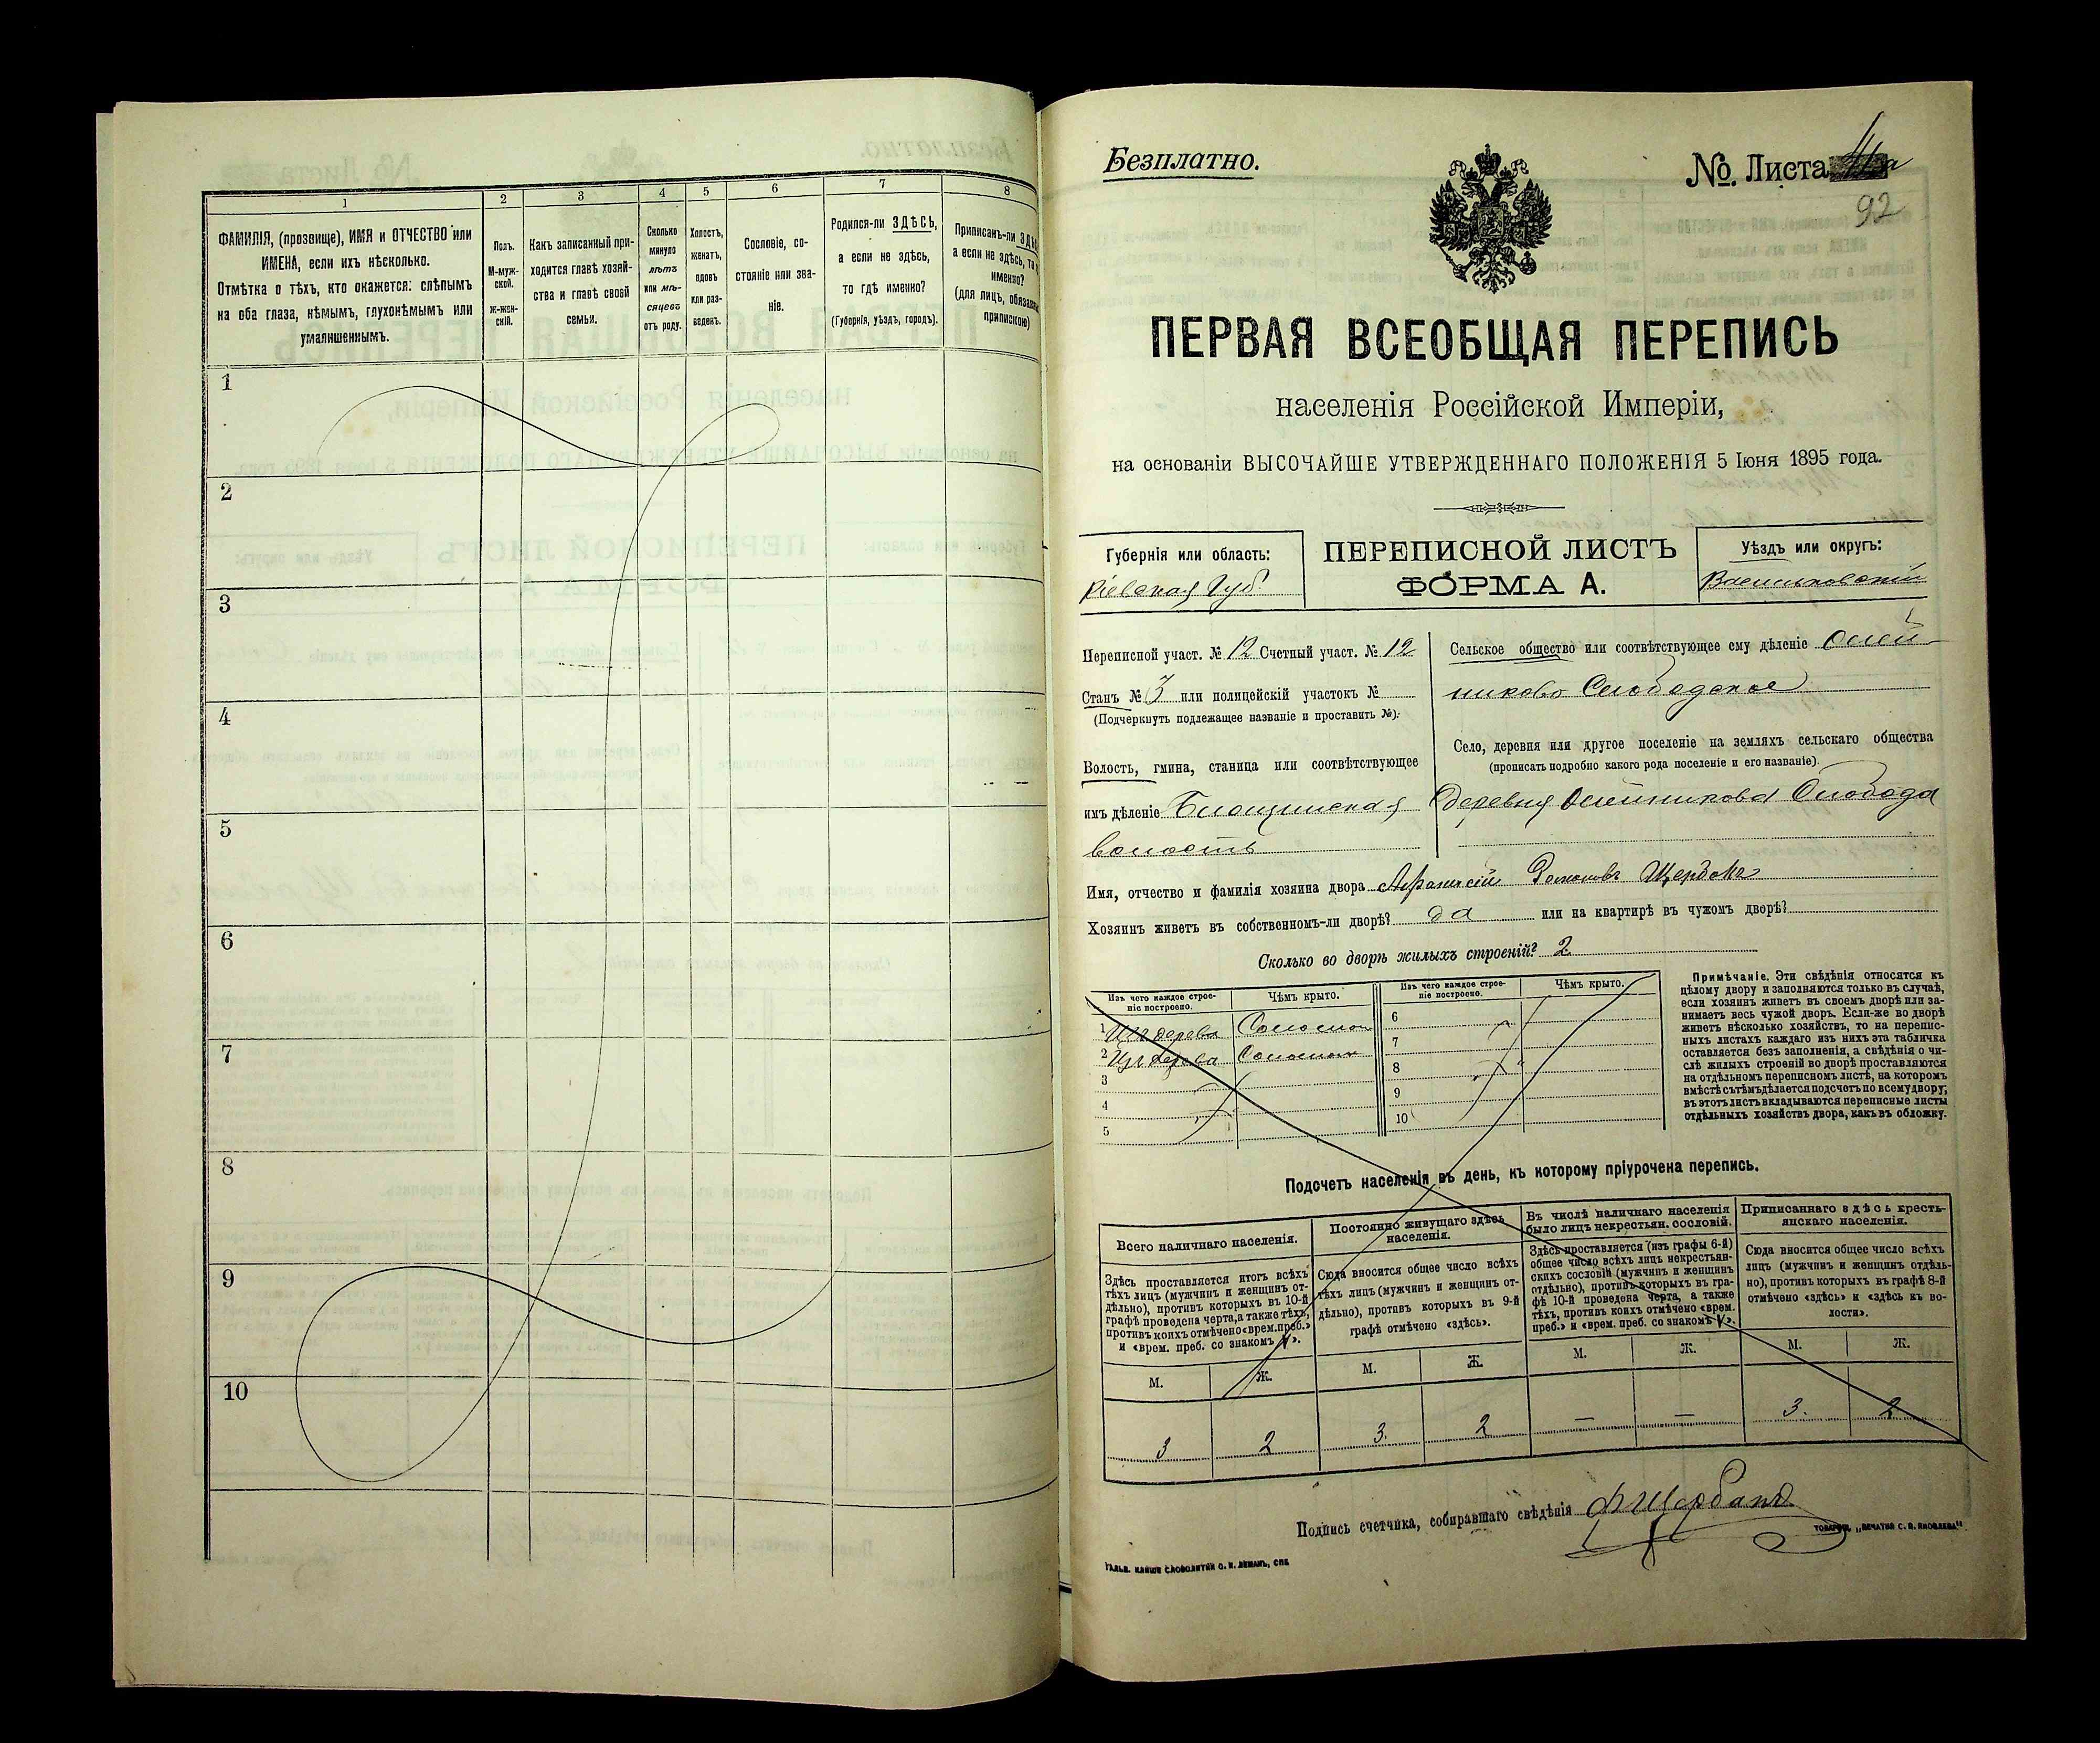 1
2
3
4
5
6
7
8
ФАМИЛІЯ, (прозвище), ИМЯ и ОТЧЕСТВО или
ИМЕНА, если ихъ нѣсколько.
Отмѣтка о тѣхъ, кто окажется: слѣпымъ
на оба глаза, нѣмымъ, глухонѣмымъ или
умалишеннымъ.
Полъ.
М-муж-
ской.
Ж-жен-
скій.
Какъ записанный при-
ходится главѣ хозяй-
ства и главѣ своей
семьи.
Сколько
минуло
лѣтъ
или мѣ-
сяцевъ
отъ роду.
Холостъ,
женатъ,
вдовъ
или раз-
веденъ.
Сословіе, со-
стояніе или зва-
ніе.
Родился-ли ЗДѢСЬ,
а если не здѣсь,
то гдѣ именно?
(Губернія, уѣздъ, городъ).
Приписанъ-ли
а если не здѣсь,
именно?
(для лицъ,
припискою)
1
2
3
4
5
6
7
8
9
10
Безплатно.
№. Листа
92
ПЕРВАЯ ВСЕОБЩАЯ ПЕРЕПИСЬ
населенія Россійской Имперіи,
на основаніи ВЫСОЧАЙШЕ УТВЕРЖДЕННАГО ПОЛОЖЕНІЯ 5 Іюня 1895 года.
Губернія или область:
Кіевская Губ.
ПЕРЕПИСНОЙ ЛИСТЪ
ФОРМА А.
Уѣздъ или округъ:
Васильковскій
Переписной участ. № 12 Счетный участ. № 12
Станъ № 3 или полицейскій участокъ №
(Подчеркнуть подлежащее названіе и проставить №).
Волость, гмина, станица или соотвѣтствующее
имъ дѣленіе Блощинская
волость
Сельское общество или соотвѣтствующее ему дѣленіе Олей-
никово Слободское
Село, деревня или другое поселеніе на земляхъ сельскаго общества
(прописать подробно какого рода поселеніе и его названіе).
Деревня Олейникова Слобода
Имя, отчество и фамилія хозяина двора Афанасій Романовъ
Хозяинъ живетъ въ собственномъ-ли дворѣ? да или на квартирѣ въ чужомъ дворѣ?
Сколько во дворѣ жилыхъ строеній? 2
Изъ чего каждое строе-
ніе построено.
Чѣмъ крыто.
Изъ чего каждое строе-
ніе построено.
Чѣмъ крыто.
1 Изъ дерева Соломой
2 Изъ дерева Соломой
3
4
5
6
7
8
9
10
Примѣчаніе. Эти свѣдѣнія относятся къ
цѣлому двору и заполняются только въ случаѣ,
если хозяинъ живетъ въ своемъ дворѣ или за-
нимаетъ весь чужой дворъ. Если-же во дворѣ
живетъ нѣсколько хозяйствъ, то на перепис-
ныхъ листахъ каждаго изъ нихъ эта табличка
оставляется безъ заполненія, а свѣдѣнія о чи-
слѣ жилыхъ строеній во дворѣ проставляются
на отдѣльномъ переписномъ листѣ, на которомъ
вмѣстѣ съ тѣмъ дѣлается подсчетъ по всему двору;
въ этотъ листъ вкладываются переписные листы
отдѣльныхъ хозяйствъ двора, какъ въ обложку.
Подсчетъ населенія въ день, къ которому пріурочена перепись.
Всего наличнаго населенія.
Постоянно живущаго здѣсь
населенія.
Въ числѣ наличнаго населенія
было лицъ некрестьян. сословій.
Приписаннаго здѣсь кресть-
янскаго населенія.
Здѣсь проставляется итогъ всѣхъ
тѣхъ лицъ (мужчинъ и женщинъ от-
дѣльно), противъ которыхъ въ 10-й
графѣ проведена черта, а также тѣхъ,
противъ коихъ отмѣчено «врем. преб.»
и «врем. преб. со знакомъ V».
Сюда вносится общее число всѣхъ
тѣхъ лицъ (мужчинъ и женщинъ от-
дѣльно), противъ которыхъ въ 9-й
графѣ отмѣчено «здѣсь».
Здѣсь проставляется (изъ графы 6-й)
общее число всѣхъ лицъ некрестьян-
скихъ сословій (мужчинъ и женщинъ
отдѣльно), противъ которыхъ въ гра-
фѣ 10-й проведена черта, а также
тѣхъ, противъ коихъ отмѣчено «врем.
преб.» и «врем. преб. со знакомъ V».
Сюда вносится общее число всѣхъ
лицъ (мужчинъ и женщинъ отдѣль-
но), противъ которыхъ въ графѣ 8-й
отмѣчено «здѣсь» и «здѣсь къ во-
лости».
М. Ж. М. Ж. М. Ж. М. Ж.
3 2 3. 2 — — 3. 2
Подпись счетчика, собиравшаго свѣдѣнія Щербань
ТОВАРИЩ. „ПЕЧАТНЯ С. П. ЯКОВЛЕВА“